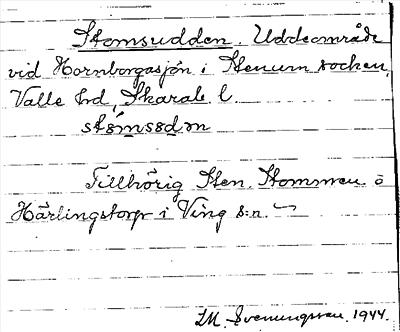 Stomsudden. Uddeområde
vid Hornborgasjön i Stenum socken,
Valle hd, Skarab. l.
stómsødn
Tillhörig Sten. Stommen o
Härlingstorp i Ving s:n.
I.M. Svenungsson. 1944.